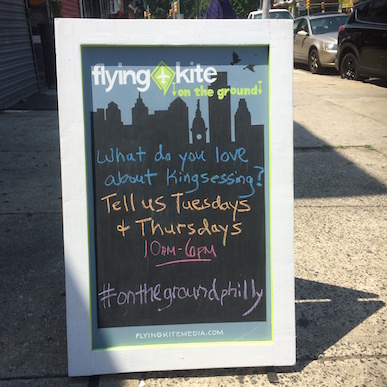 flying kite
on the ground
What do you love
about Kingsessing?
Tell us Tuesdays
& Thursdays
10AM-6PM
#onthegroundphilly
FLYINGKITEMEDIA.COM